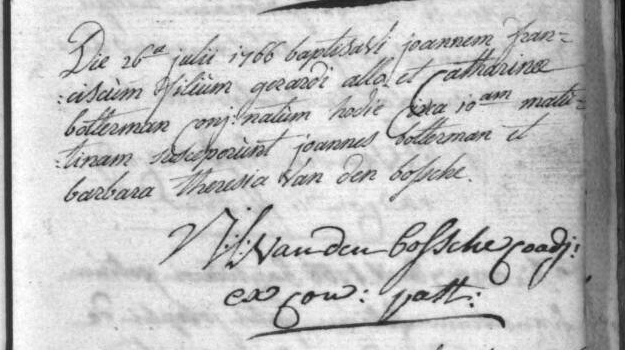 Die 26a julii 1766 baptisavi joannem fran=
=ciscum filium gerardi allo et Catharinæ
botterman Conj: natum hodie Circa 10am matu=
=tinam susceperunt joannes botterman et
barbara theresia Van den bossche.
Vanden bossche Coadj:
ex com: past: